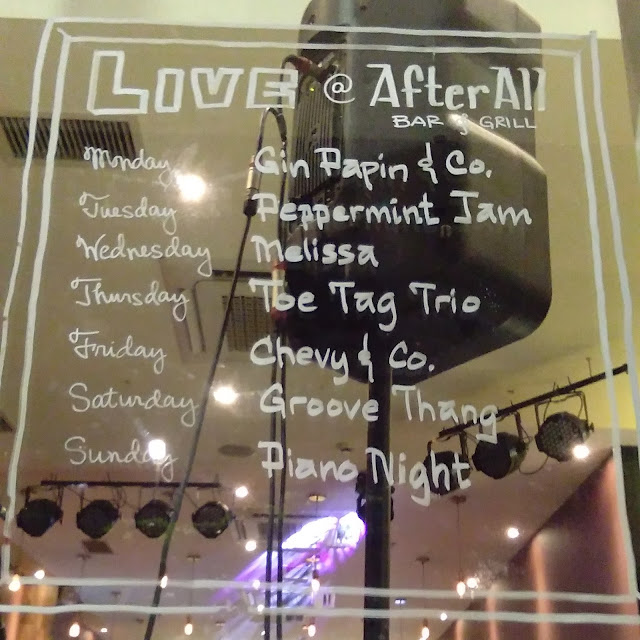 LIVE @ AfterAll
BAR & GRILL
Monday Gin Papin & Co.
Tuesday Peppermint Jam
Wednesday Melissa
Thursday Toe Tag Trio
Friday Chevy & Co.
Saturday Groove Thang
Sunday Piano Night